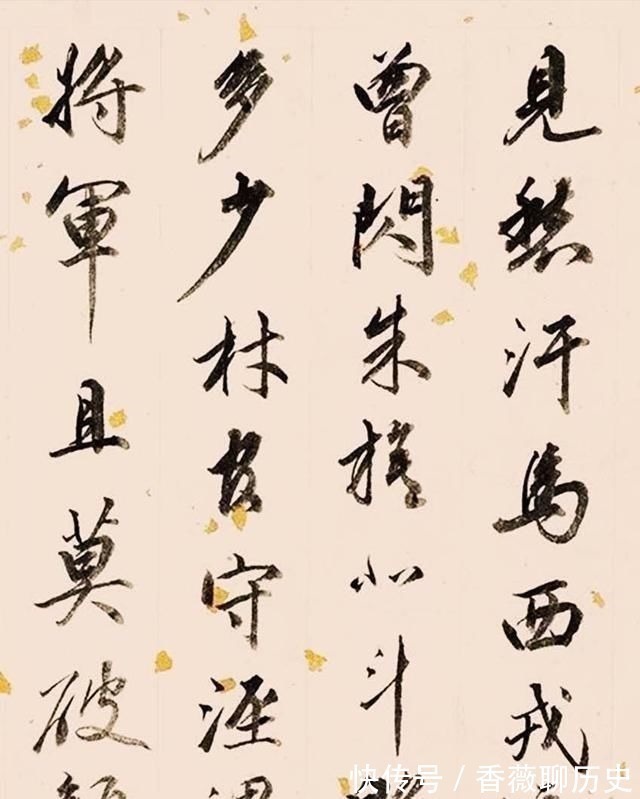 見愁汗馬西戎
曾閃朱旗北斗
多少材官守涇
將軍且莫破
快传号 / 香薇聊历史